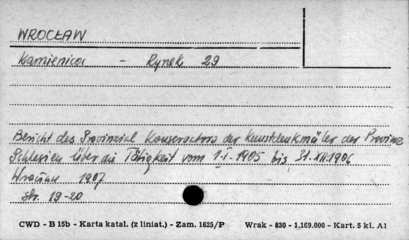 WROCŁAW
Kamienica - Rynek 29
Bericht des Provinzial Konservators der Kunstdenkmäler der Provinz
Schlesien über die Tätigkeit vom 1.I.1905 bis 31.XII.1906
Wrocław 1907
str. 19-20
CWD - B 15b - Karta katal. (z liniat.) - Zam. 1625/P Wrak - 830 - 1,169.000 - Kart. 5 kl. A1